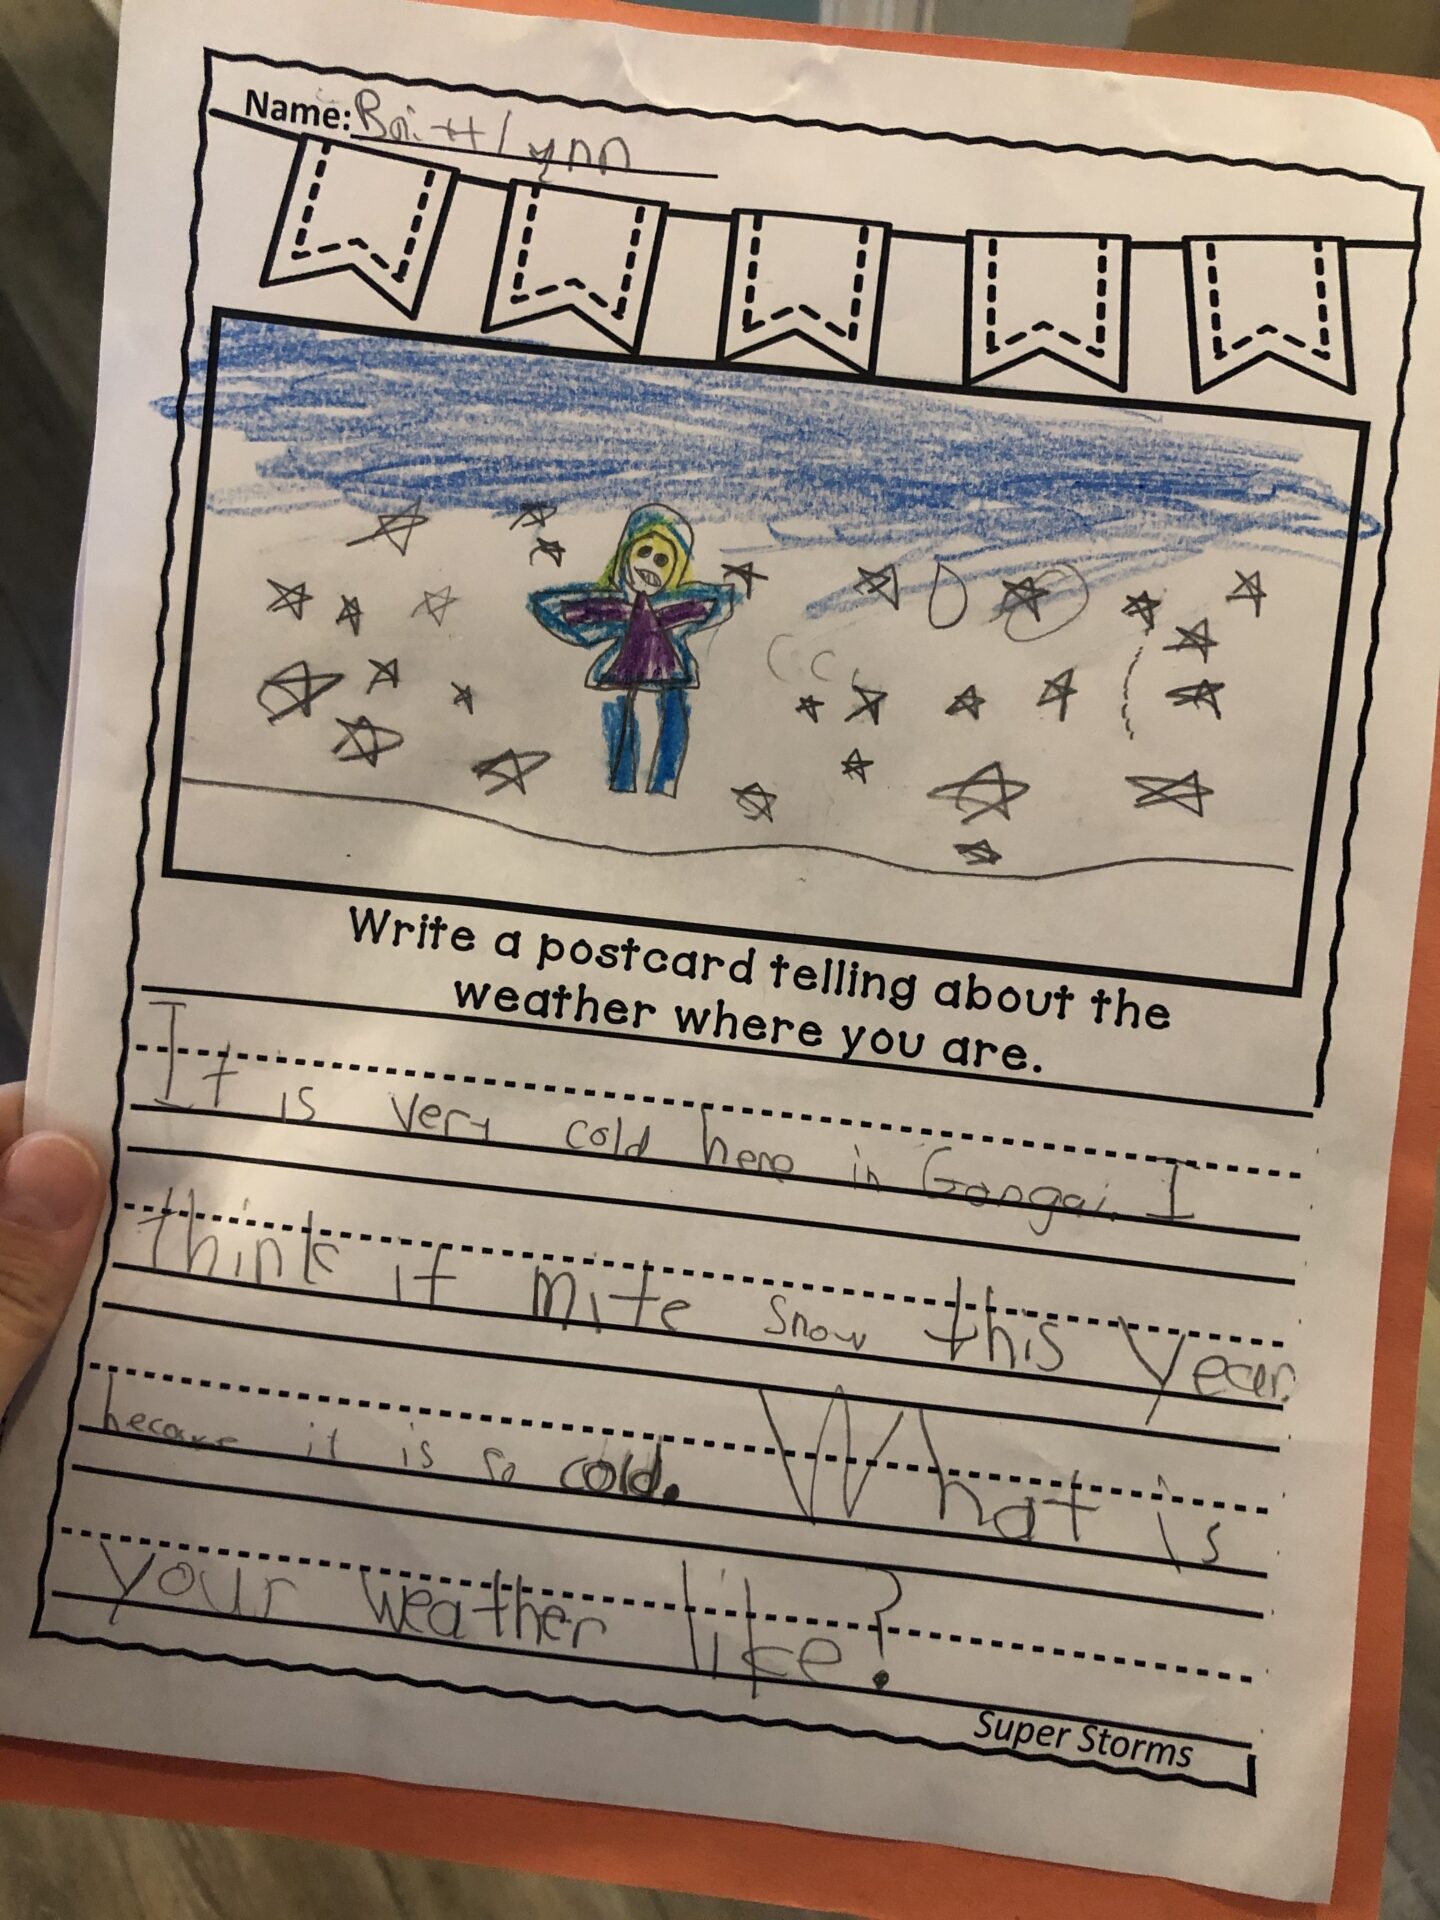 Name: Brittlynn
Write a postcard telling about the
weather where you are.
It is very cold here in Gorgai. I
think it mite snow this year.
because it is so cold. What is
your weather like?
Super Storms